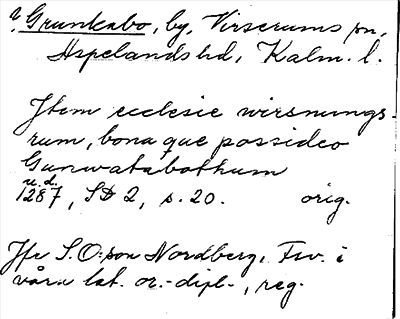 ? Grunkabo, by, Virserums sn,
Aspelands hd, Kalm. l.
Item ecclesie wirsnungs-
rum, bona que possideo
Gunwatabothum
u.d.
1287, SD 2, s. 20. orig.
Jfr S. O:son Nordberg, Fsv. i
våra lat. or.-dipl., reg.